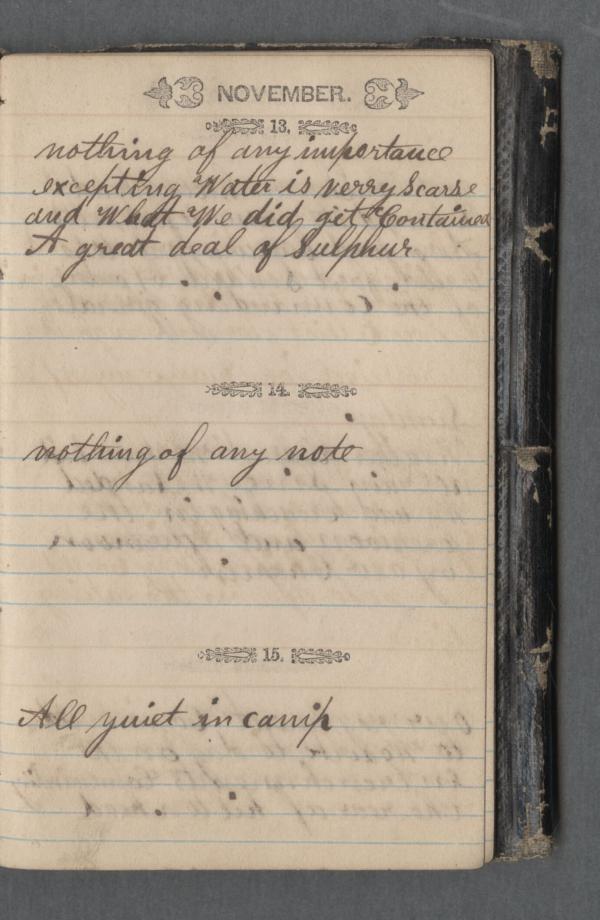 NOVEMBER.
13.
nothing of any importance
excepting Water is verry Scarse
and What We did git Contained
A great deal of Sulphur
14.
nothing of any note
15.
All quiet in camp